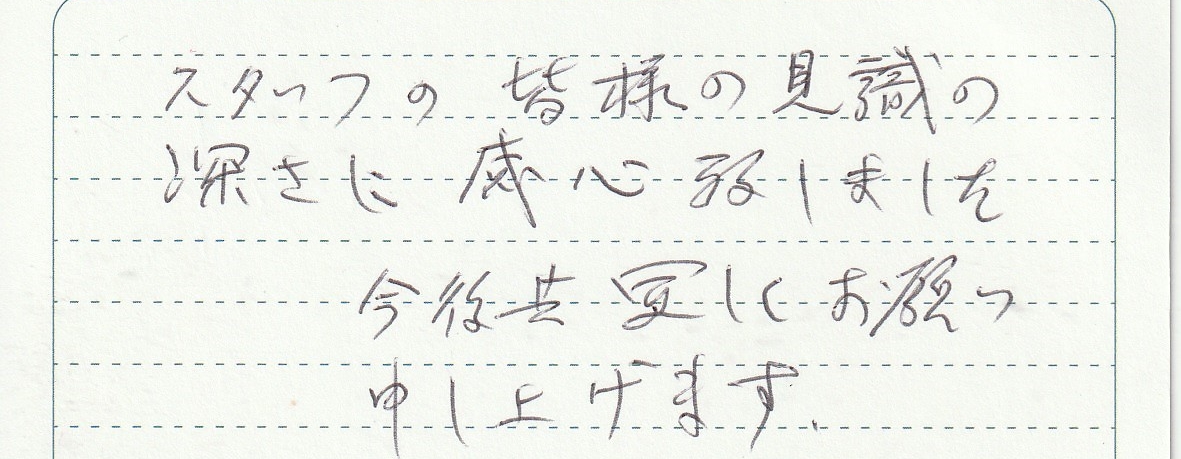 スタッフの皆様の見識の
深さに感心致しました
今後共宜しくお願い
申し上げます.